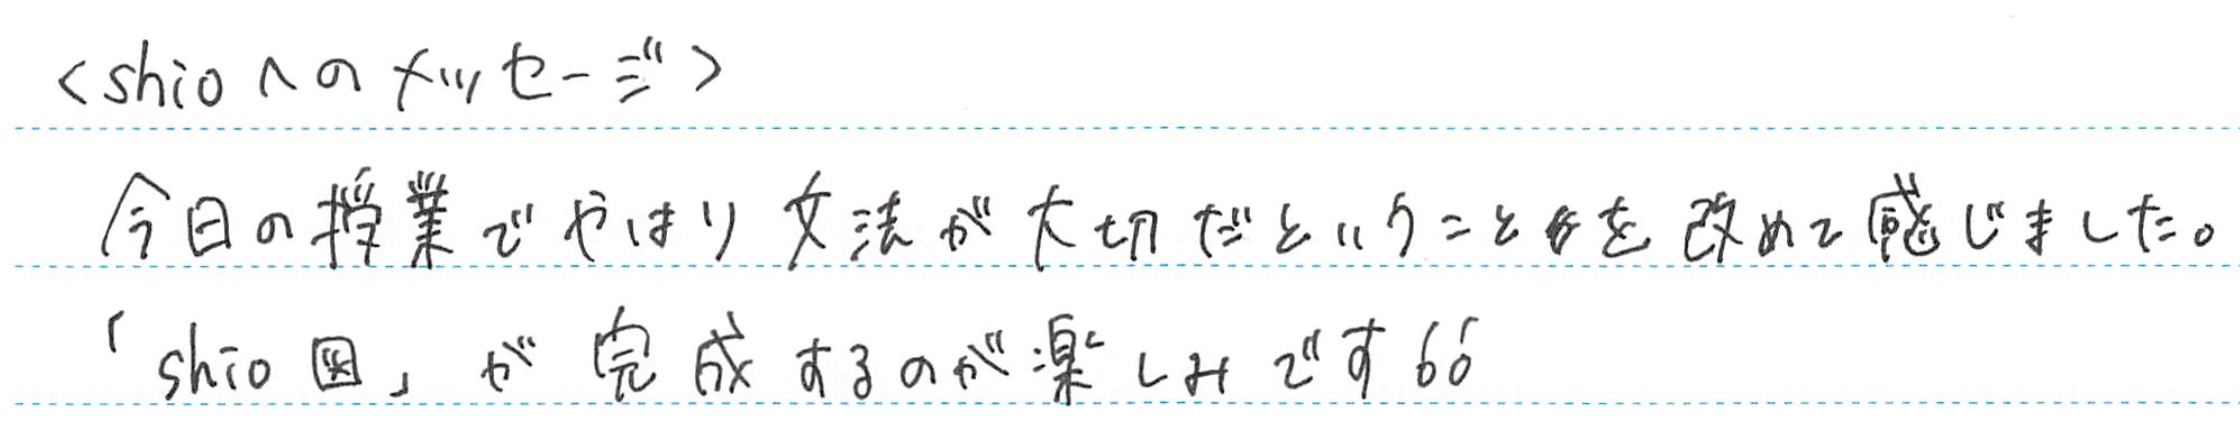 <shioへのメッセージ>
今日の授業でやはり文法が大切だということを改めて感じました。
「shio図」が完成するのが楽しみです